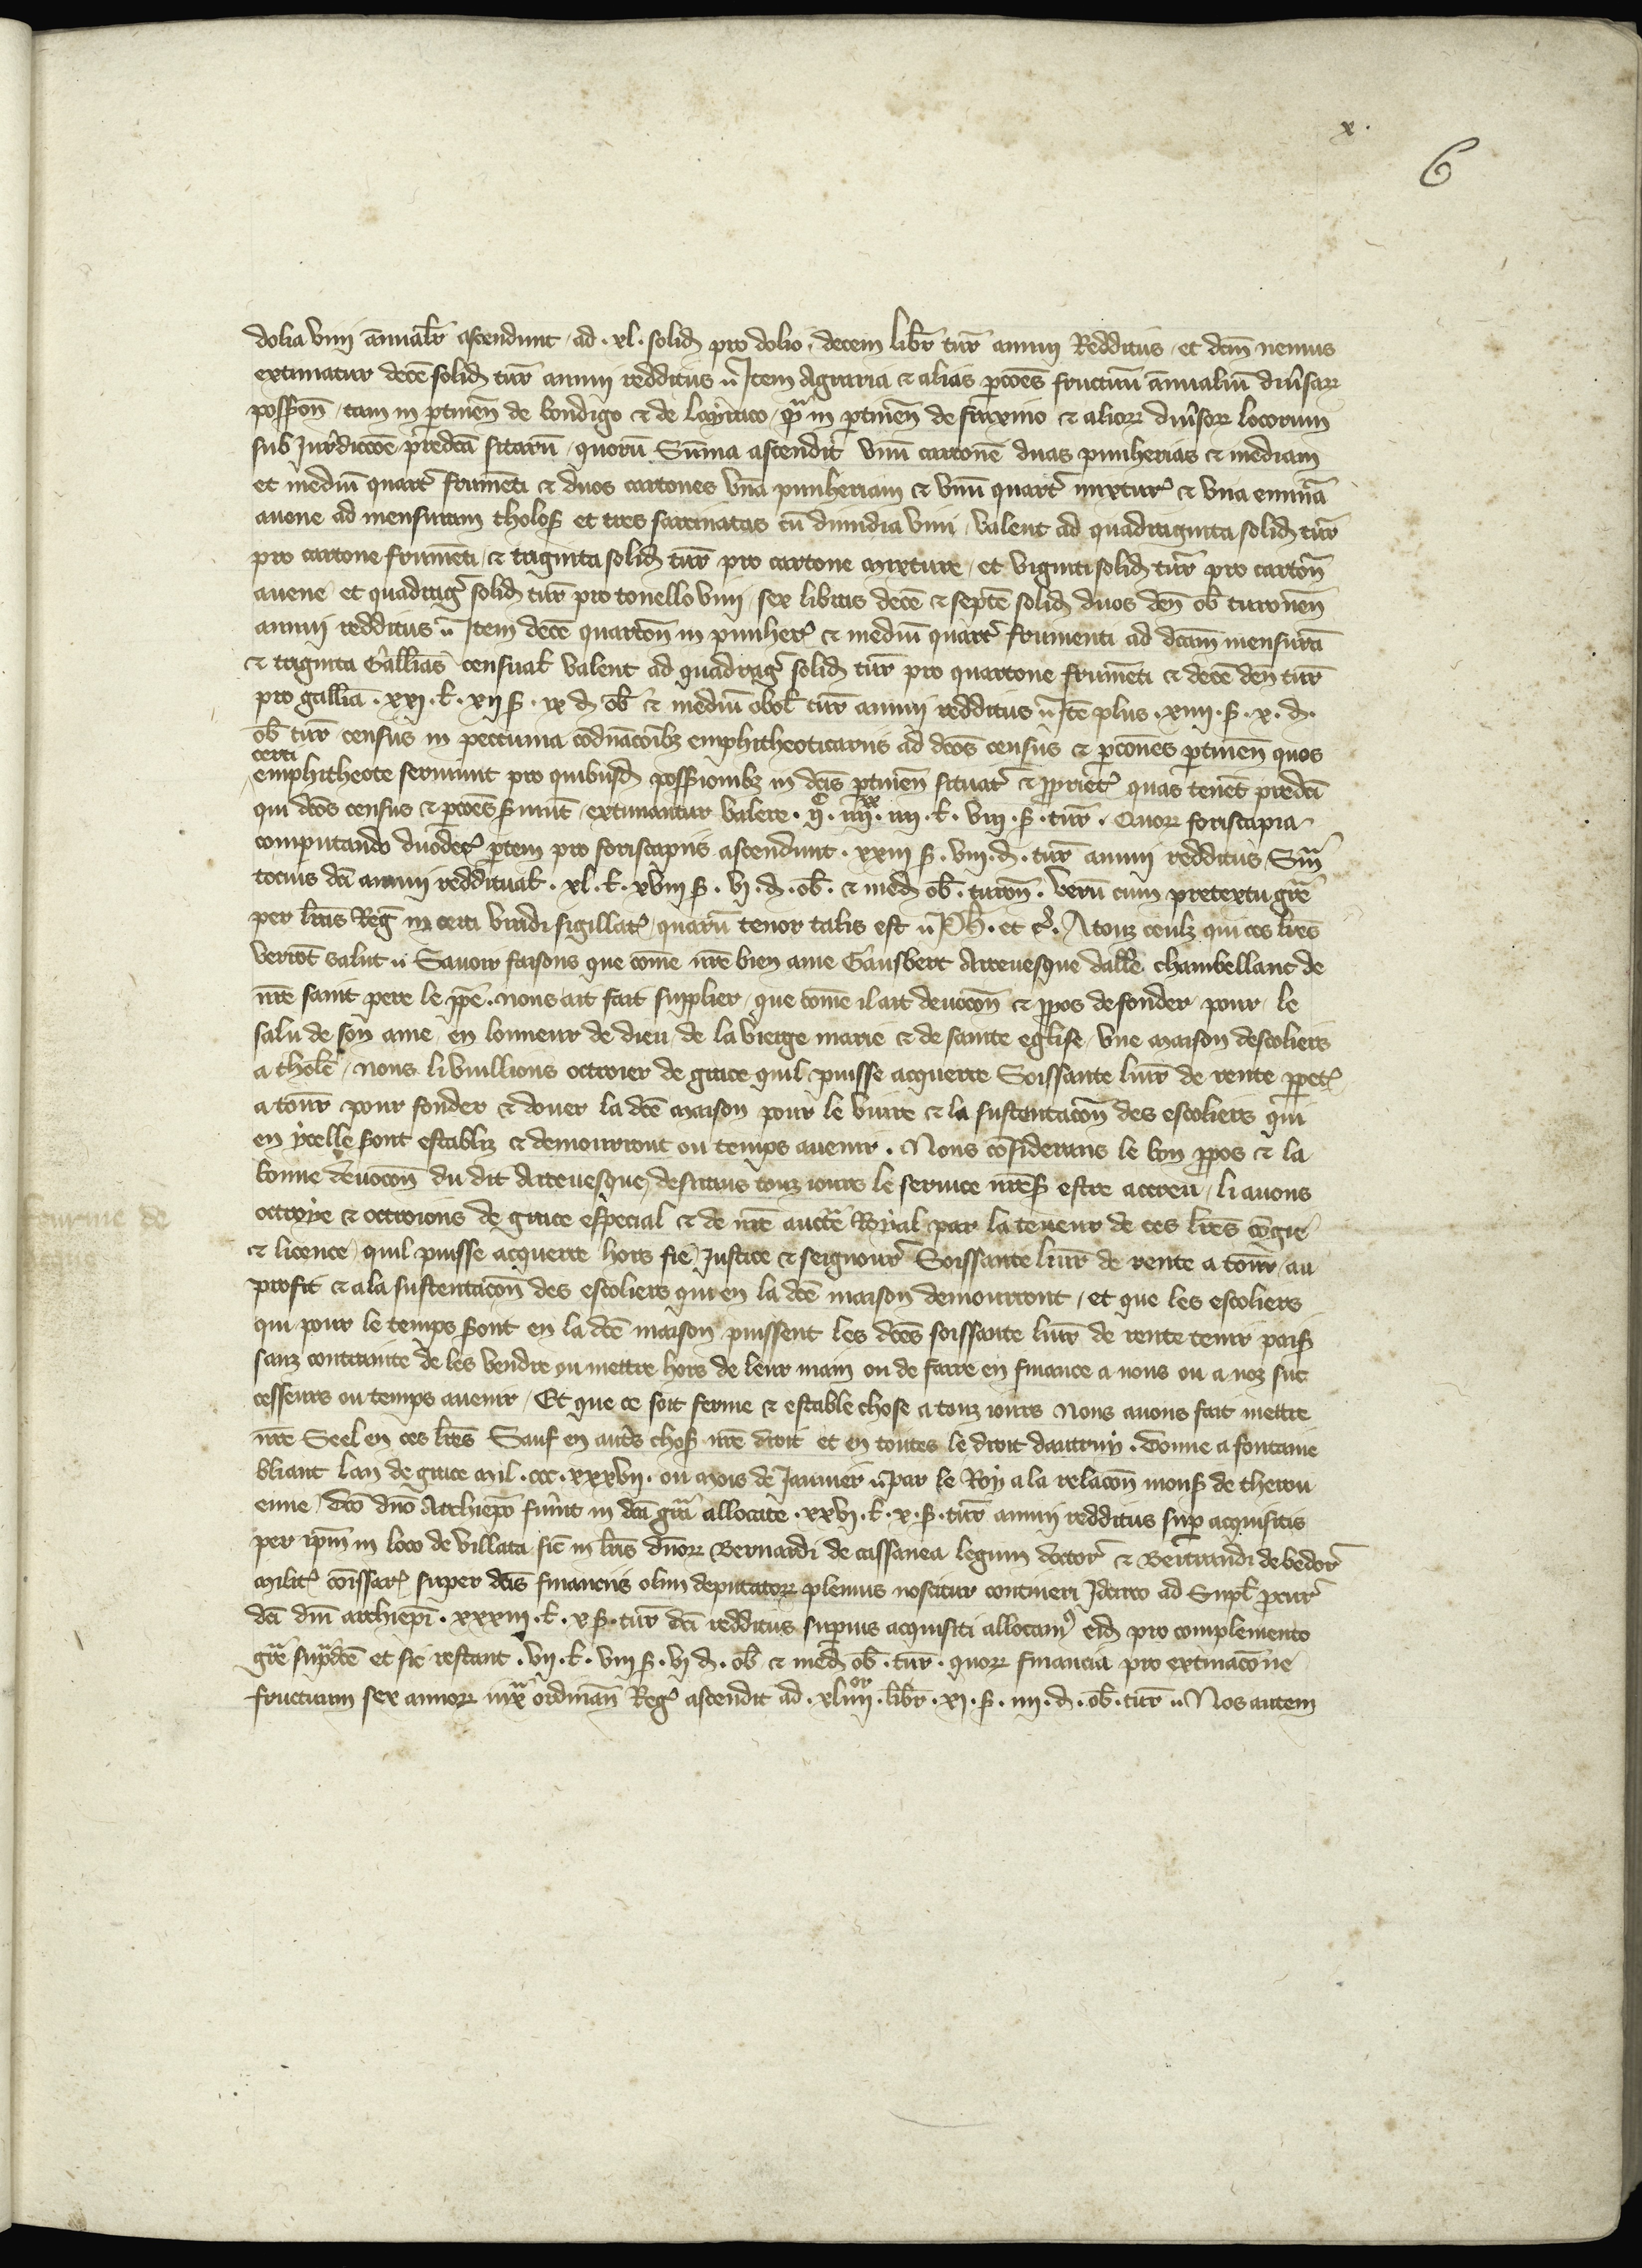 x.
6
dolia vini ānualr̄ ascendunt / ad . xl . solid pro dolio / decem libr̄ tur̄ annui Redditus / et dc̄m nemus
extimatur decē solid tur̄ annui redditus ῡ Item Agraria & alias p̱cōes fructuū ānualiū diũsar̄
possiōn / tam in ptineñ de bondigo & de loyraco / qͣ in ptineñ de fraxino & alior̄ diũsor̄ locorum
sub Jurdiccōe predcā sitarū / quorū Sūma ascendit vnū cartonē duas punherias & mediam
et mediū quart̉ frumēti & duos cartones vnā punheriam & vnū quart̉ mixtur̉ & vna eminā
auene ad mensuram tholoſ et tres sarcinatas cū dimidia vini / valent ad quadraginta solid tur̄
pro cartone frumēti / & triginta solid tur̄ pro cartone mixture / et viginti solid tur̄ pro cartoñ
auene / et quadrag̉ solid tur̄ pro tonello vini / sex libras decē & septē solid duos deñ ob̄ turoneñ
annui redditus ῡ Item decē quartoñ in punher̉ & mediū quart̉ frumenti ad dcām mensurā
& triginta Gallinas censual̄ valent ad quadrag̉ solid tur̄ pro quartone frumēti & decē deñ tur̄
pro gallinā . xxi . l̄ . xii ſ . ix d ob̄ & mediū obol̄ tur̄ annui redditus ῡ Itē plus . xiiii . ſ . x . d .
ob̄ tur̄ census in peccunia cōdnācōibȝ emphitheoticariis ad dcōs census & p̱cōnes ptineñ quos
certi
emphitheote seruiunt pro quibusd possiōnibȝ in dcīs ptineñ situat̉ & ꝓpriet̉ quas tenēt predcī
qui dcōs census & p̱cōes ſ̃uiūt / extimantur valere . iiᶜ . iiiiˣˣ . iiii . l̄ . viii . ſ . tur̄ . Quor̄ foriscapia
computando duodec̉ ptem pro foriscapiis ascendunt . xxiii ſ . viii . d . tur̄ annui redditus / Sm̄ͣ
tocius dcī annui redditual̄ . xl . l̄ . xviii ſ . vi . d . ob̄ . & med ob̄ . turoñ . Verū cum pretextu gr̄e
per lr̄as Reḡ in cera viridi sigillat̉ / quarū tenor talis est ῡ Ph̄ . et c̉ . A touz ceulz qui ces lr̄es
verrōt salut ῡ Sauoir faisons que cōme nr̄e bien ame Gausbert Arceuesque dallē chambellanc de
nr̄e saint pere le pp̄e . nous ait fait supplier / que cōme il ait deuocōn & ꝓpos de fonder pour / le
salu de son ame / en lonneur de dieu / de la vierge marie & de sainte eglise / vne maison descoliers
a tholē / nous li vuillions octroier de grace quil puisse acquerre Soissante liur̄ de rente ꝑpet̉
a tour̄ pour fonder & douer la dcē maison pour le viure & la sustentacōn des escoliers qui
en ycelle ſont establiz & demourront ou temps auenir . Nous cōsiderans le bon ꝓpos & la
bonne deuocōn du dit Arceuesque / desirans touz iours le seruice nr̄eſ estre acreu / li auons
octroye & octroions de grace especial & de nr̄e auctē Royal par la teneur de ces lr̄es cōgie
& licence / quil puisse acquerre hors fie Justice & seignour̉ Soissante liur̄ de rente a tour̄ / au
profit & a la sustentacōn des escoliers qui en la dcē maison demourront / et que les escoliers
qui pour le temps ſont en la dcē maison puissent les dcēs soissante liur̄ de rente tenir paiſ
sanz contrainte de les vendre ou mettre hors de leur main ou de faire en finance a nous ou a noz suc
cesseurs ou temps auenir / Et que ce soit ferme & estable chose a touz iours Nous auons fait mettre
nr̄e Seel en ces lr̄es Sauf en autˢ choſ nr̄e droit et en toutes le droit dautruy . Donne a fontaine
bliaut lan de grace mil . ccc . xxxvii . ou mois de Januier ῡ par le Roy a la relacōn monſ de therou
enne / Dcō dnō Archiepō fuñt in dcā grā allocate . xxvi . l̄ . x . ſ . tur̄ annui redditus sup acquisitis
per ipm̄ in loco de villata sic̄ in lr̄is dnōr̄ Bernardi de cassanea legum doctor̉ & Bertrandi de bedor̄
milit̉ cōissar̉ super dcīs financiis olim deputator̄ plenius noscitur contineri Idcirco ad Supl̄ ꝓcur̉
dcī dnī archiepī . xxxiii . l̄ . x ſ . tur̄ dcī redditus superius acquisiti allocam⁹ eid pro complemento
gr̄e supͣdcē et sic restant . vii . l̄ . viii ſ . vi d . ob̄ & med ob̄ . tur̄ . quor̄ financia pro extimacōne
fructuum sex annor̄ iuxͣ ordināñ Reg̉ ascendit ad . xliiiiᵒʳ . libr̄ . xi . ſ . iiii . d . ob̄ . tur̄ ῡ Nos autem